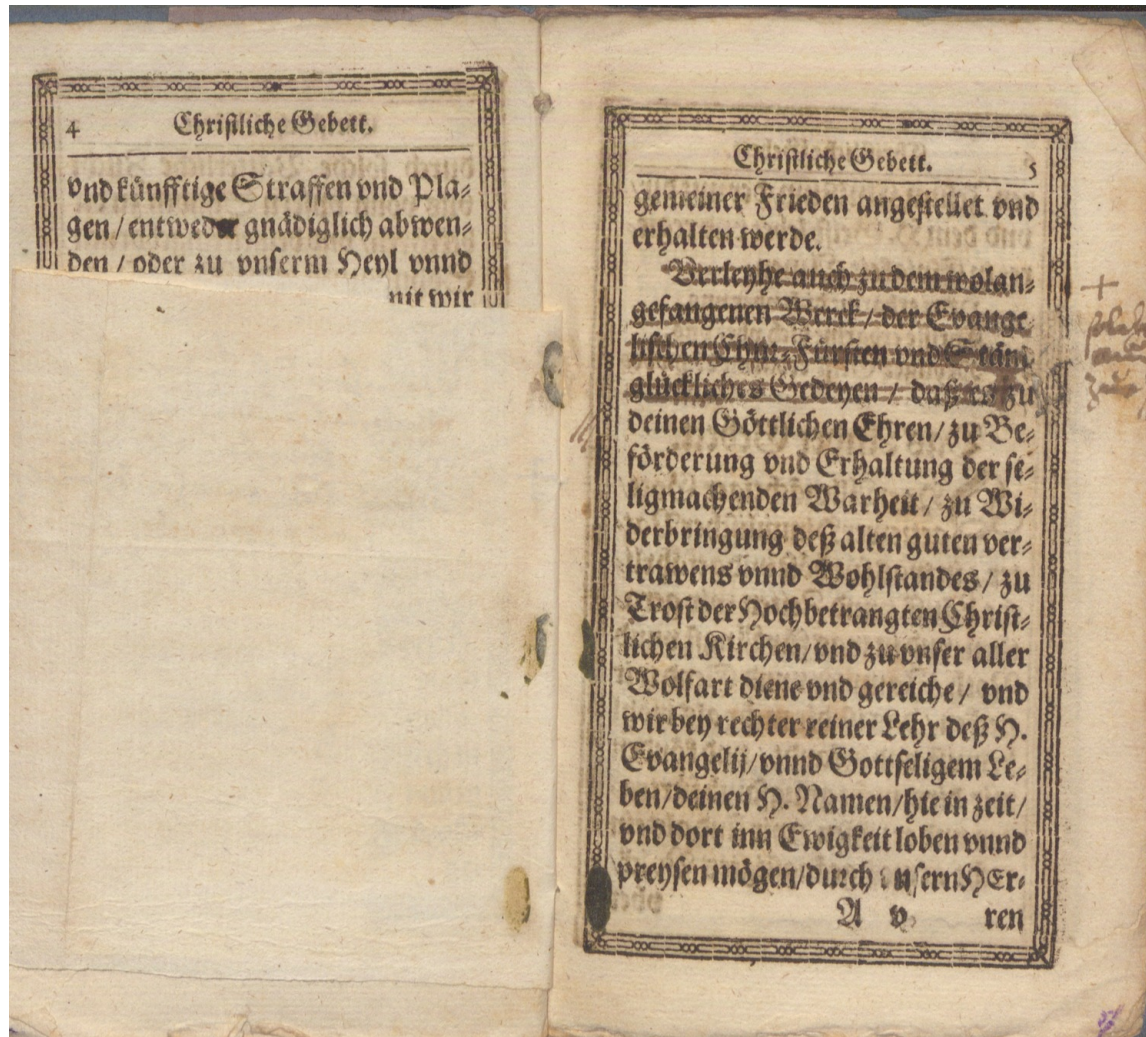 4 Christliche Gebett.
vnd künfftige Straffen vnd Pla⸗
gen / entweder gnädiglich abwen⸗
den / oder zu vnserm Heyl vnnd
mit wir
Christliche Gebett. 5
gemeiner Frieden angestellet vnd
erhalten werde.
Verleyhe auch zu dem wolan⸗
gefangenen Werck / der Evange
lischen Chur⸗Fürsten vnd Stän
glückliches Gedeyen / daß es zu
deinen Göttlichen Ehren / zu Be⸗
förderung vnd Erhaltung der se⸗
ligmachenden Warheit / zu Wi⸗
derbringung deß alten guten ver⸗
trawens vnnd Wohlstandes / zu
Trost der Hochbetrangten Christ⸗
lichen Kirchen / vnd zu vnser aller
Wolfart diene vnd gereiche / vnd
wir bey rechter reiner Lehr deß H.
Evangelij / vnnd Gottseligem Le⸗
ben / deinen H. Namen / hie in zeit /
vnd dort inn Ewigkeit loben vnnd
preysen mögen / durch vnsern HEr⸗
A v ren